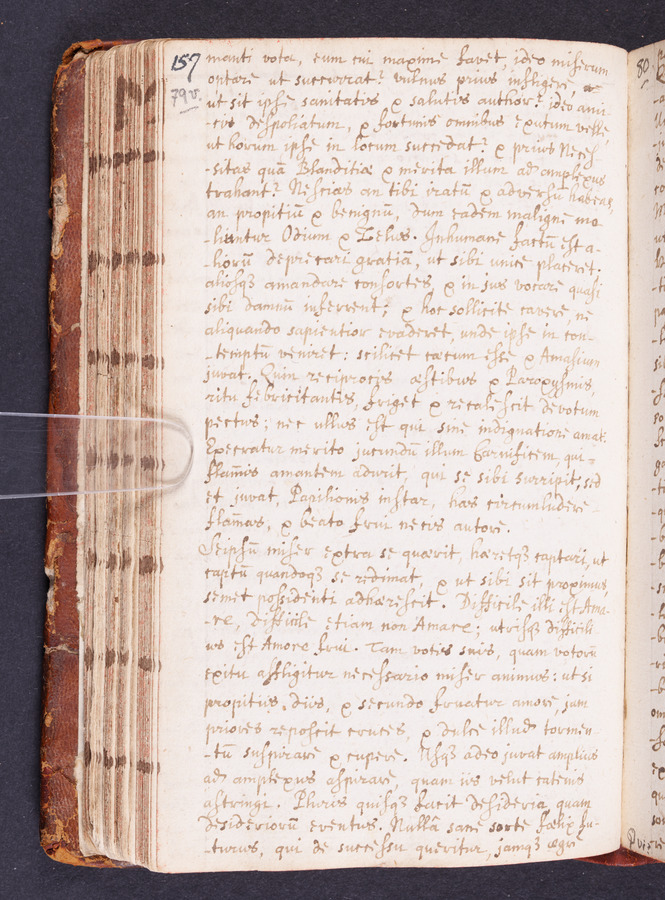 157 manti vota, eum cui maxime favet, ideo miserum
79v. optare ut succurrat? vulnus prius infligere,
ut sit ipse sanitatis & salutis author? ideo ami-
-cis despoliatum, & fortunis omnibus exutum velle,
ut horum ipse in locum succedat? & prius Neces-
-sitas quā Blanditiæ & merita illum ad amplexus
trahant? Nescias an tibi iratū & adversū habeas,
an propitiū & benignū, dum eadem maligne mo-
-liuntur Odium & Zelus. Inhumane factū est a-
-liorū deprecari gratiā, ut sibi unice placeret.
aliosqȝ amandare consortes, & in jus vocare quasi
sibi damnū inferrent; & hoc sollicite cavere, ne
aliquando sapientior evaderet, unde ipse in con-
-temptū veniret: scilicet cæcum esse & Amasium
juvat. Quin reciprocis æstibus & Paroxysmis,
ritu febricitantis, friget & recalescit devotum
pectus: nec ullus est qui sine indignatione amat.
Execratur merito jucundū illum Carnificem, qui
flam̄is amantem adurit, qui se sibi surripit, sed
et juvat, Papilionis instar, has circumludere
flam̄as, & beato frui necis autore.
Seipsū miser extra se quærit, hæretqȝ captari, ut
captū quandoqȝ se redimat, & ut sibi sit proximus,
semet possidenti adhærescit. Difficile illi est Ama-
-re, difficile etiam non Amare; utrisqȝ difficili-
us est Amore frui. Tam votis suis, quam votorū
exitu affligitur necessario miser animus: ut si
propitiis Diis, & secundo fruatur amore, jam
priores reposcit cruces, & dulce illud tormen-
-tū suspirare & cupere. Usqȝ adeo juvat amplius
ad amplexus aspirare, quam iis velut catenis
astringi. Pluris quisqȝ facit desideria quam
desideriorū eventus. Nullâ sane sorte fœlix fu-
-turus, qui de successu queritur, jamqȝ ægre
80